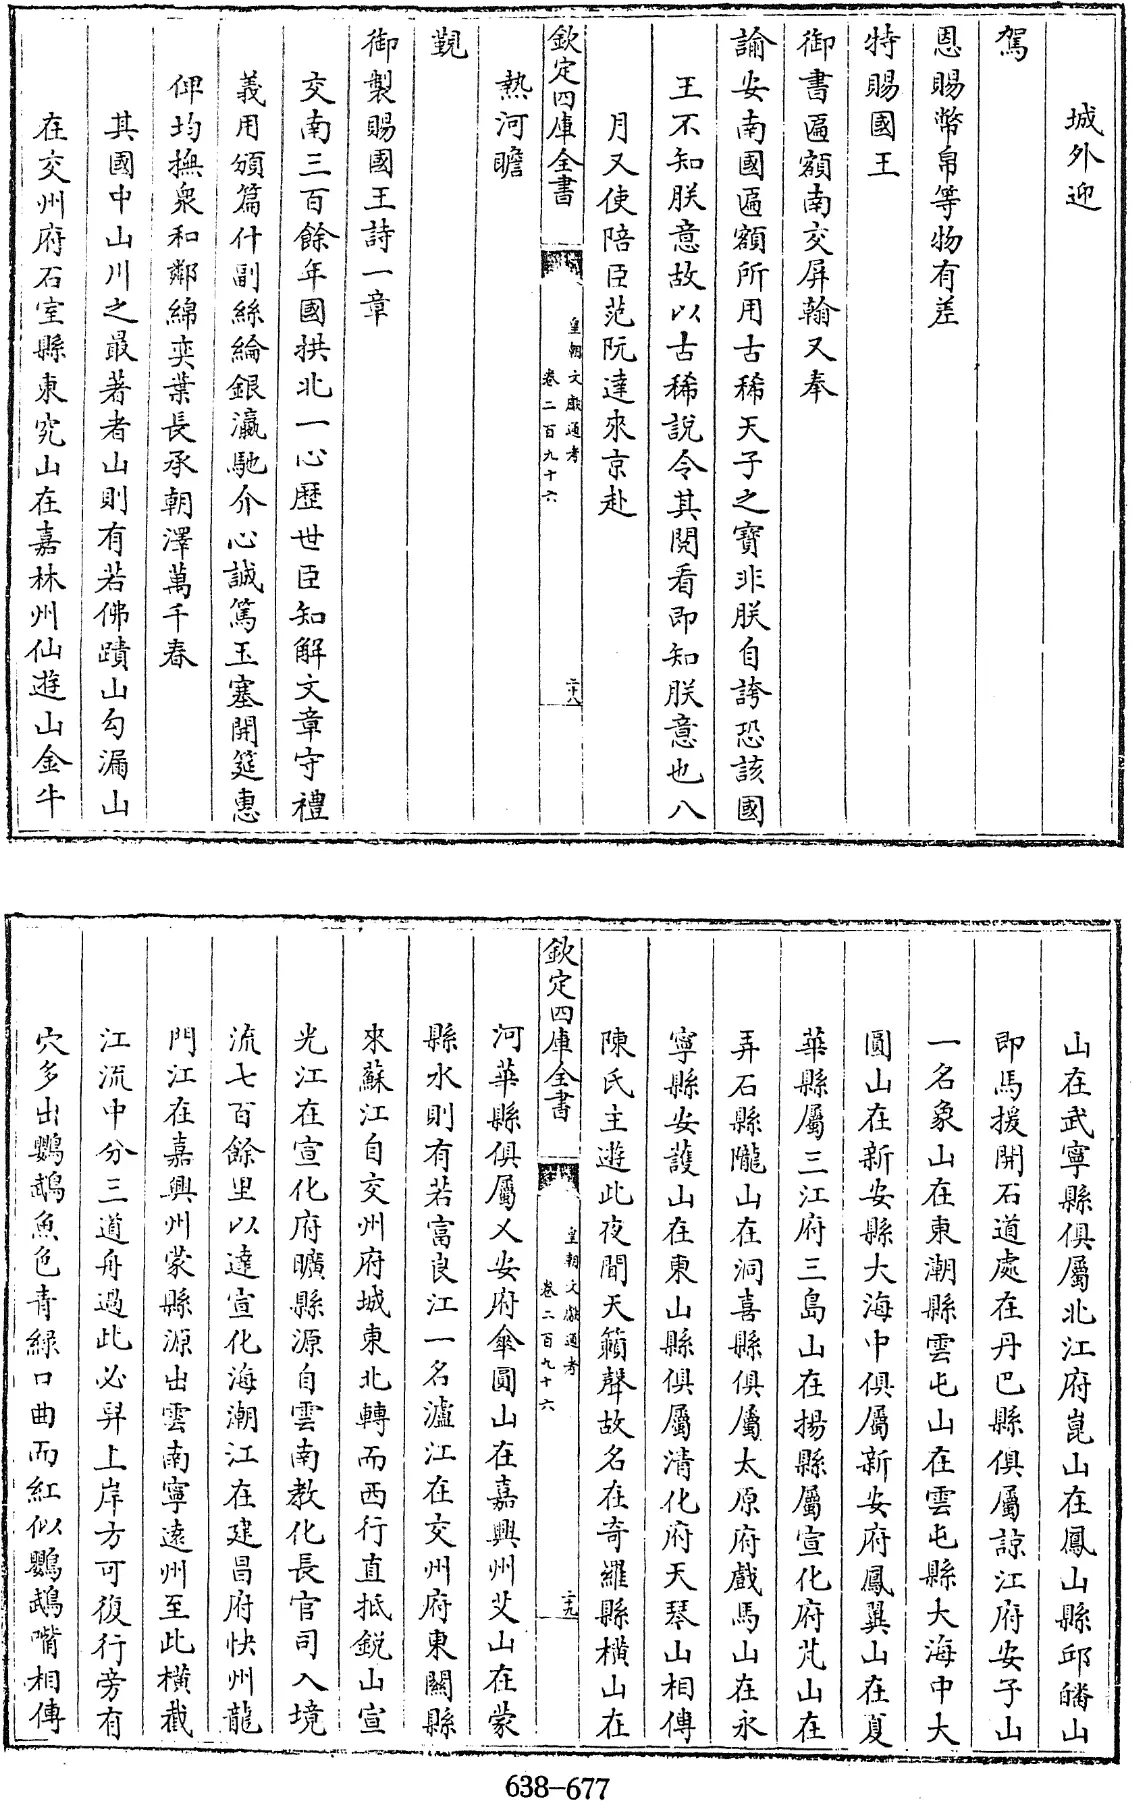 城外迎
駕
恩賜幣帛等物有差
特賜國王
御書匾額南交屏翰又奉
諭安南國匾額所用古稀天子之寶非朕自誇恐該國
王不知朕意故以古稀說令其閱看即知朕意也八
月又使陪臣范阮達來京赴
欽定四庫全書
皇朝文獻通考
卷二百九十六
二十八
熱河瞻
覲
御製賜國王詩一章
交南三百餘年國拱北一心歴世臣知解文章守禮
義用頒篇什副絲綸銀瀛馳介心誠篤玉塞開筵惠
伻均撫衆和鄰綿奕葉長承朝澤萬千春
其國中山川之最著者山則有若佛蹟山勾漏山
在交州府石室縣東究山在嘉林州仙遊山金牛
山在武寧縣俱屬北江府崑山在鳳山縣邱皤山
即馬援開石道處在丹巴縣俱屬諒江府安子山
一名象山在東潮縣雲屯山在雲屯縣大海中大
圓山在新安縣大海中俱屬新安府鳳翼山在夏
華縣屬三江府三島山在揚縣屬宣化府芃山在
弄石縣隴山在洞喜縣俱屬太原府戲馬山在永
寧縣安護山在東山縣俱屬清化府天琴山相傳
陳氏主遊此夜聞天籟聲故名在奇羅縣橫山在
欽定四庫全書
皇朝文獻通考
卷二百九十六
二十九
河華縣俱屬乂安府傘圓山在嘉興州艾山在蒙
縣水則有若富良江一名瀘江在交州府東關縣
來蘇江自交州府城東北轉而西行直抵銳山宣
光江在宣化府曠縣源自雲南教化長官司入境
流七百餘里以達宣化海潮江在建昌府快州龍
門江在嘉興州蒙縣源出雲南寧遠州至此橫截
江流中分三道舟過此必舁上岸方可復行旁有
穴多出鸚鵡魚色青綠口曲而紅似鸚鵡嘴相傳
638-677